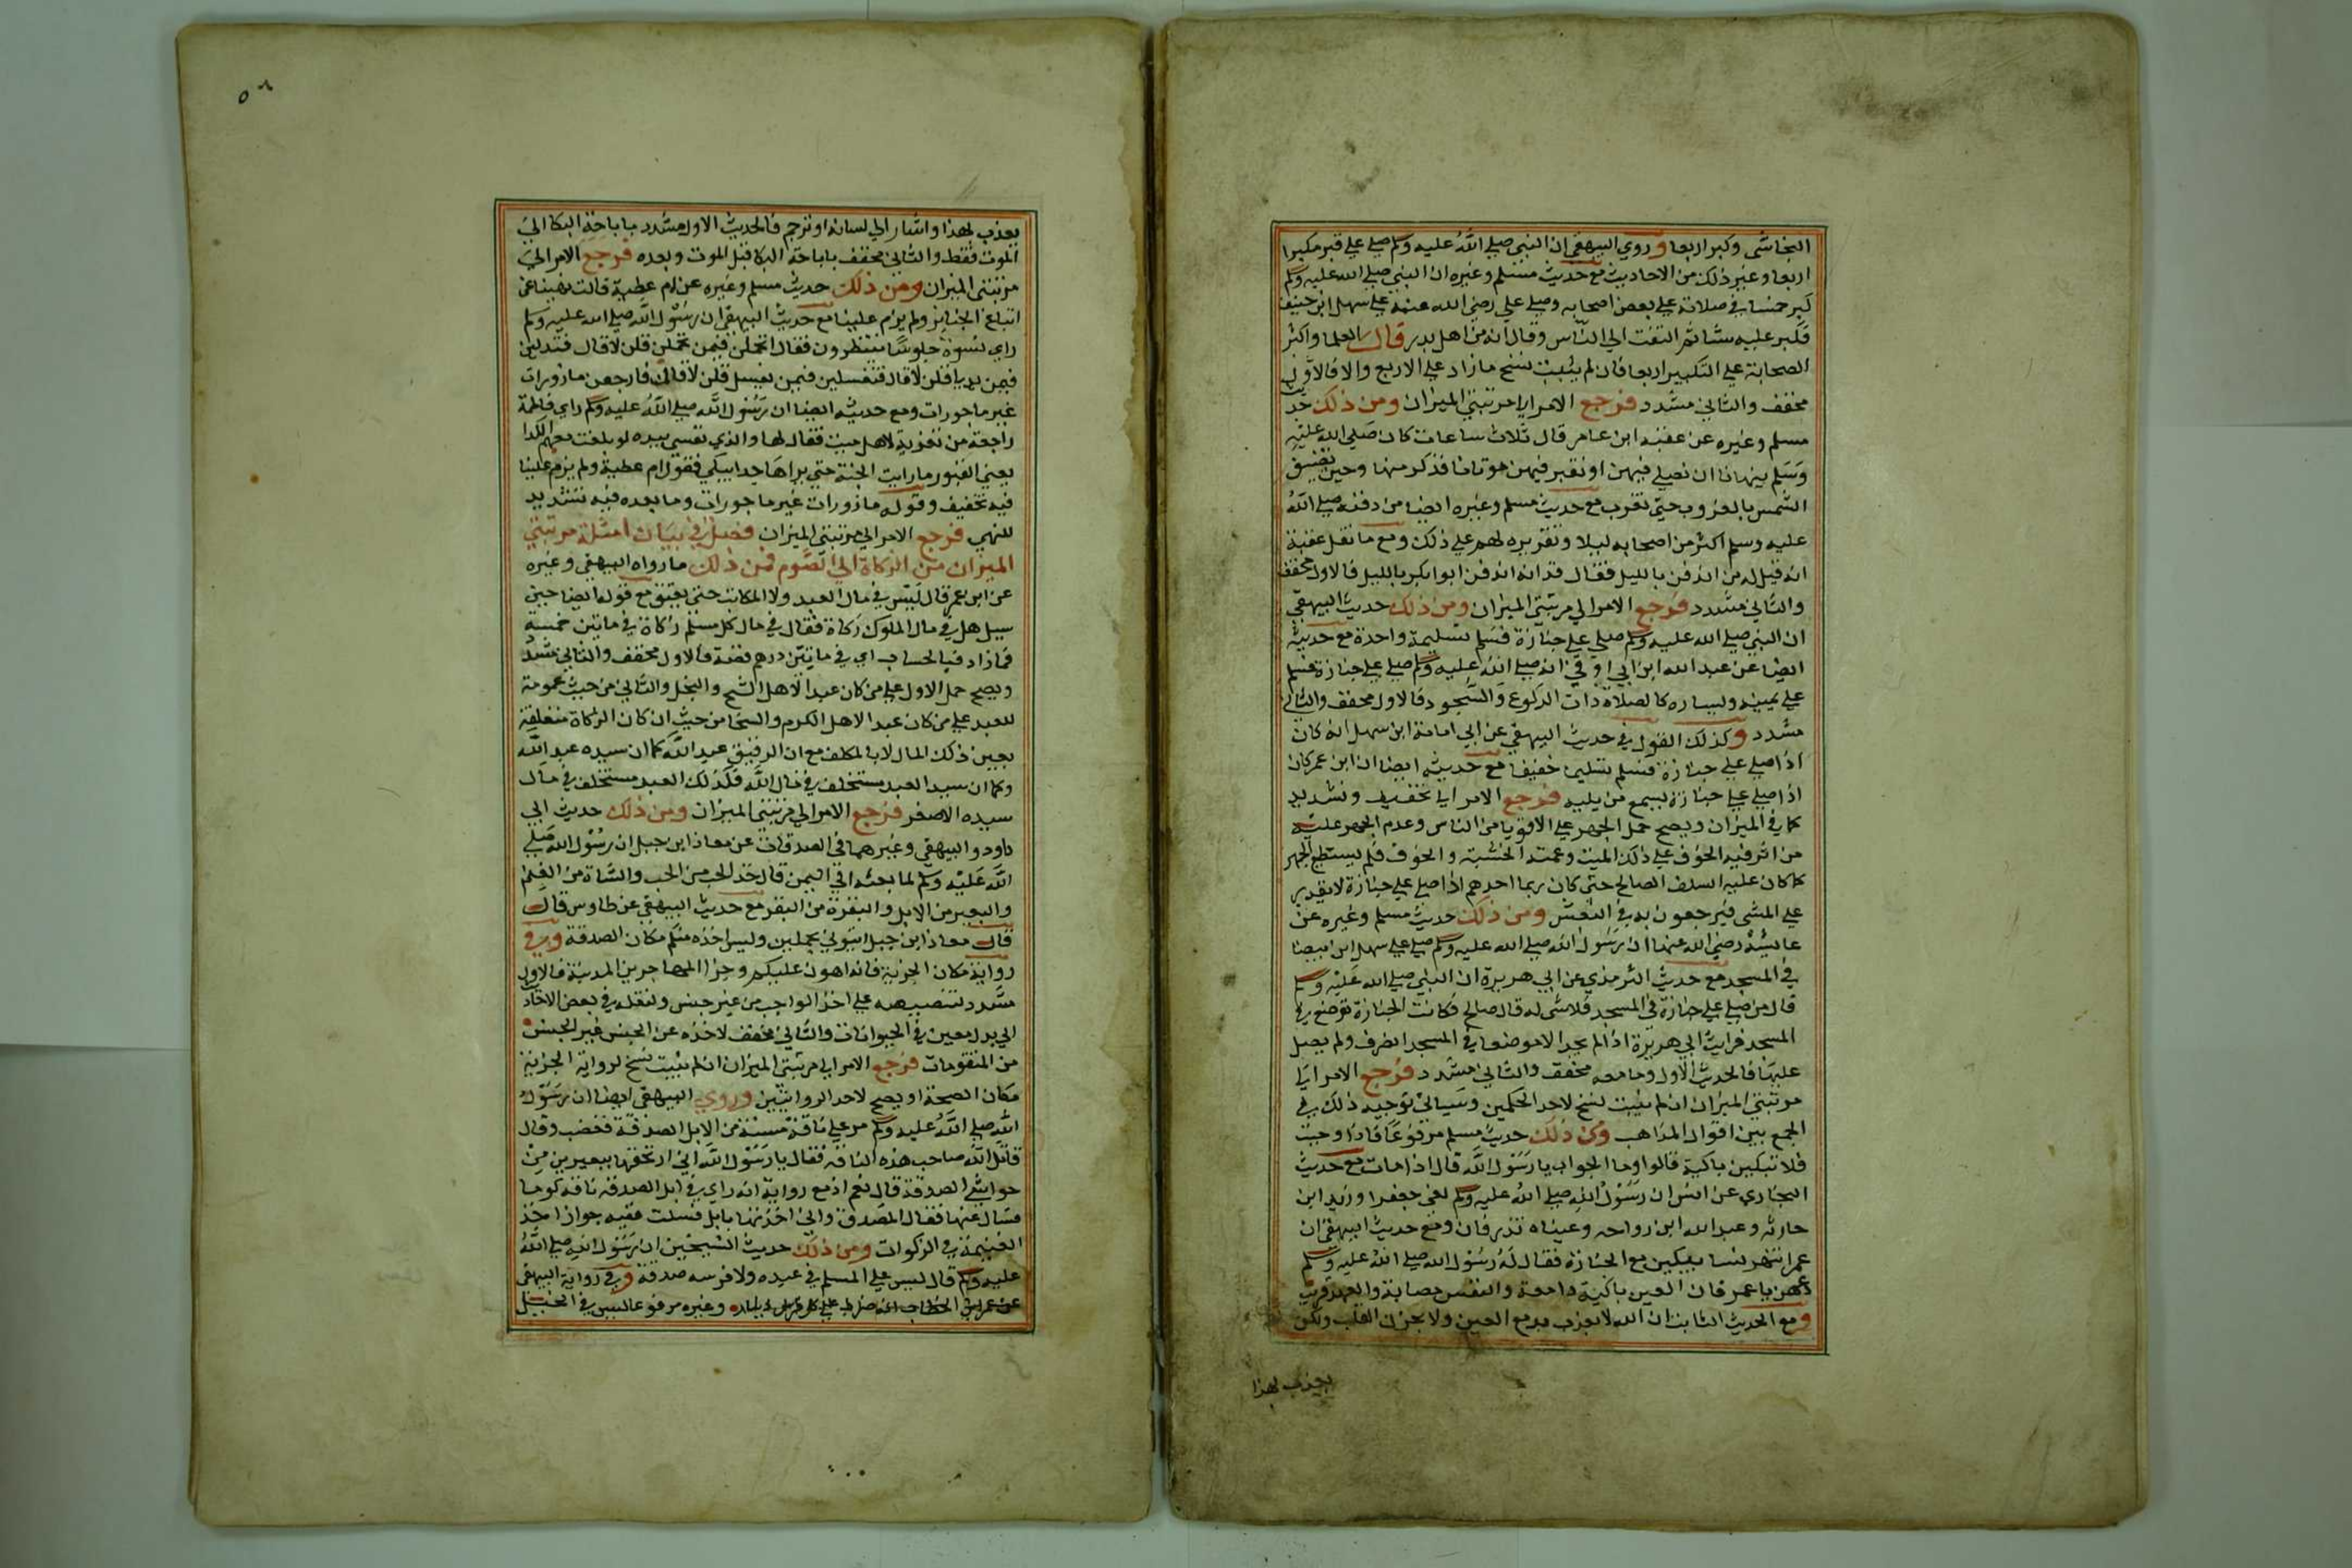 النجاشي وكبر اربعا وروي البيهقي ان النبي صلي الله عليه وسلم صلي علي قبر مكبرا
اربعا وغير ذلك من الاحاديث مع حديث مسلم وغيره ان النبي صلي الله عليه وسلم
كبر خمسا في صلاته علي بعض اصحابه وصلي علي رضي الله عنه علي سهل ابن حنيف
فكبر عليه ستا ثم التفت الي الناس وقال انه من اهل بدر قال العلما واكثر
الصحابة علي التكبير اربعا فان لم يثبت نسخ مازاد علي الاربع والا فالاول
مخفف والثاني مشدد فرجع الامر الي مرتبتي الميزان ومن ذلك حديث
مسلم وغيره عن عقبة ابن عامر قال ثلاث ساعات كان صلي الله عليه
وسلم ينهانا ان نصلي فيهن او نقبر فيهن موتانا فذكر منها وحين تضيف
الشمس بالغروب حتي تغرب مع حديث مسلم وغيره ايضا من دفنه صلي الله
عليه وسلم اكثر من اصحابه ليلا وتقريره لهم علي ذلك ومع ما نقل عقبة
انه قيل له من اندفن بالليل فقال قد انه اندفن ابو ابكر بالليل فالاول مخفف
والثاني مشدد فرجع الامر الي مرتبتي الميزان ومن ذلك حديث البيهقي
ان النبي صلي الله عليه وسلم صلي علي جنازة فسلم تسليمة واحدة مع حديثه
ايضا عن عبد الله ابن ابي اوفي انه صلي الله عليه وسلم صلي علي جنازة فسلم
علي يمينه ويساره كالصلاة ذات الركوع والسجود فالاول مخفف والثاني
مشدد وكذلك القول في حديث البيهقي عن ابي امامة ابن سهل انه كان
اذا صلي علي جنازة فسلم تسليما خفيفا مع حديثه ايضا ان ابن عمر كان
اذا صلي علي جنازة يسمع من يليه فرجع الامر الي تخفيف وتشديد
كما في الميزان ويصح حمل الجهر علي الاقويا من الناس وعدم الجهر عليه
من اثر فيه الخوف علي ذلك الميت وعمته الخشية والخوف فلم يستطع الجهر
كما كان عليه السلف الصالح حتي كان ربما احدهم اذا صلي علي جنازة لا يقدر
علي المشي فيرجعون به في النعش ومن ذلك حديث مسلم وغيره عن
عايشة رضي الله عنها ان رسول الله صلي الله عليه وسلم صلي علي سهل ابن بيضا
في المسجد مع حديث الترمذي عن ابي هريرة ان النبي صلي الله عليه وسلم
قال من صلي علي جنازة في المسجد فلاشي له قال صالح فكانت الجنازة توضع في
المسجد فرايت ابي هريرة اذا لم يجد الا موضعا في المسجد انصرف ولم يصل
عليها فالحديث الاول وما معه مخفف والثاني مشدد فرجع الامر الي
مرتبتي الميزان ان لم يثبت نسخ لاحد الحكمين وسياتي توجيه ذلك في
الجمع بين اقوال المذاهب ومن ذلك حديث مسلم مرفوعا فاذا وجبت
فلا تبكين باكية قالوا وما الجواب يا رسول الله قال اذا مات مع حديث
البخاري عن انس ان رسول الله صلي الله عليه وسلم نعي جعفرا وزيد ابن
حارثه وعبد الله ابن رواحه وعيناه تذرفان ومع حديث البيهقي ان
عمر انتهر نسا يبكين مع الجنازة فقال له رسول الله صلي الله عليه وسلم
دعهن يا عمر فان العين باكية دامعة والنفس مصابة والعهد قريب
ومع الحديث الثابت ان الله لا يعذب بدمع العين ولا بحزن القلب ولكن
يعذب بهذا
٥٦
يعذب بهذا واشار الي لسانه او ترجم فالحديث الاول مشدد باباحة البكا الي
الموت فقط والثاني مخفف باباحة البكا قبل الموت وبعده فرجع الامر الي
مرتبتي الميزان ومن ذلك حديث مسلم وغيره عن ام عطية قالت نهينا عن
اتباع الجنايز ولم يزم علينا مع حديث البيهقي ان رسول الله صلي الله عليه وسلم
راي نسوة جلوسا ينتظرون فقال اتحلن فيمن تحملن قلن لا قال فتدلين
فيمن يدليا قلن لا قال فتغسلين فيمن يغسل قلن لا قال فارجعن مازورات
غير ماجورات ومع حديثه ايضا ان رسول الله صلي الله عليه وسلم راي فاطمة
راجعة من تعزية لاهل ميت فقال لها والذي نفسي بيده لو بلغت معهم الكدا
يعني القبور ما رايت الجنة حتي يراها جد ابيكي فقول ام عطية ولم يزم علينا
فيه تخفيف وقوله مازورات غير ماجورات وما بعده فيه تشديد
للنهي فرجع الامر الي مرتبتي الميزان فصل في بيان امثلة مرتبتي
الميزان من الزكاة الي الصوم فمن ذلك ما رواه البيهقي وغيره
عن ابن عمر قال ليس في مال العبد ولا المكاتب حتي يعتق مع قوله ايضا حين
سيل هل في مال المملوك زكاة فقال في مال كل مسلم زكاة في مايتين خمسة
فمازاد فبالحساب اي في مايتين درهم فضة فالاول مخفف والثاني مشدد
ويصح حمل الاول علي من كان عبدا لاهل الشح والبخل والثاني من حيث عمومة
للعبد علي من كان عبدا لاهل الكرم والسخا من حيث ان كان الزكاة متعلقة
بعين ذلك المال لا بالمكلف مع ان الرقيق عبد الله كما ان سيده عبد الله
وكما ان سيد العبد مستخلف في مال الله فكذلك العبد مستخلف في مال
سيده الاصغر فرجع الامر الي مرتبتي الميزان ومن ذلك حديث ابي
داود والبيهقي وغيرهما في الصدقات عن معاذ ابن جبل ان رسول الله صلي
الله عليه وسلم لما بعثه الي اليمن قال خذ الحب من الحب والشاة من الغنم
والبعير من الابل والبقرة من البقر مع حديث البيهقي عن طاوس قال
قال معاذ ابن جبل ايتوني بجملين وليس اخذه منكم مكان الصدقة وفي
رواية مكان الجزية فانه اهون عليكم وجزا المهاجرين المدينة فالاول
مشدد لتنصيصه علي اخذ الواجب من غير جنس ونقله في بعض الاحاديث
الي بدل معين في الحيوانات والثاني مخفف لاخذه عن الجنس غير الجنس
من المتقومات فرجع الامر الي مرتبتي الميزان ان لم يثبت نسخ لرواية الجزية
مكان الصحة او يصح لاحد الروايتين وروي البيهقي ايضا ان رسول
الله صلي الله عليه وسلم مر علي ناقة مسنة من الابل الصدقة فغضب وقال
قاتل الله صاحب هذه الناقه فقال يا رسول الله اني ارتحقها ببعيرين من
حواشي الصدقة قال نعم اذ مع رواية انه راي في ابل الصدقه ناقه كوما
فسال عنها فقال المصدق واني اخذتها بابل فسلت ففيه جواز اخذ
القيمة في الزكوات ومن ذلك حديث الشيخين ان رسول الله صلي الله
عليه وسلم قال ليس علي المسلم في عبده ولا فرسه صدقة وفي رواية البيهقي
وغيره مرفوعا ليس في الخيل